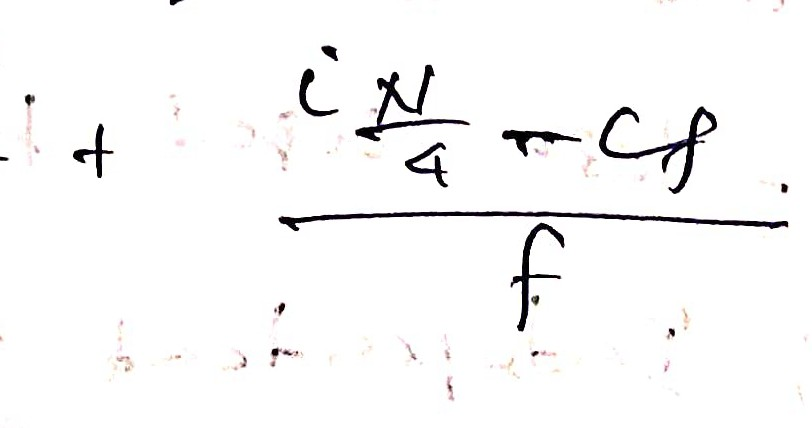 + (i N/4 - cf) / f